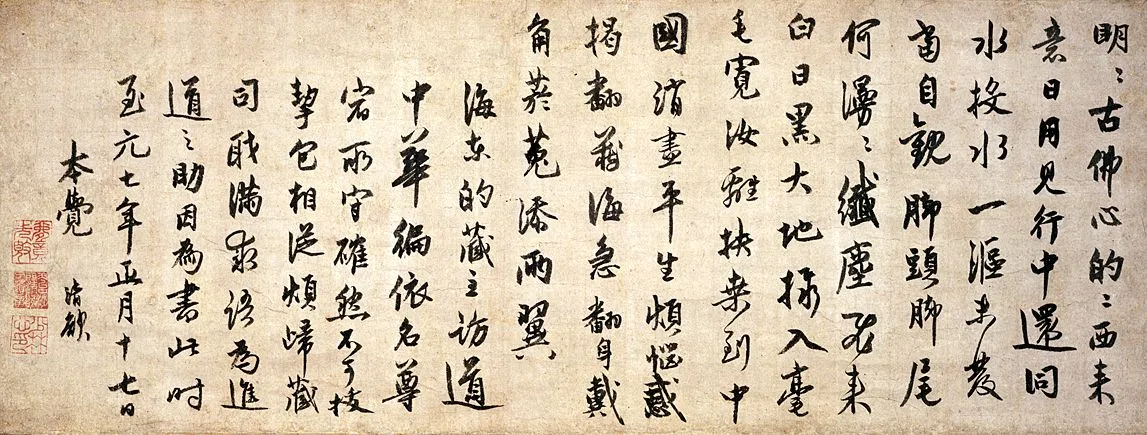 明〻古佛心的〻西来
意日月見行中還同
水投水一漚未發
當自観脚頭脚尾
何漫〻纖塵飛来
白日黑大地撮入毫
毛寛汝離扶桒到中
國消盡平生煩惱惑
掲翻蔵海急翻身戴
角菸菟添兩翼
海東的蔵主訪道
中華徧依名尊
宿所守確然不可拔
挈包相從煩歸蔵
司職滿求語為進
道之助因為書此时
至元七年正月十七日
本覺 清欲